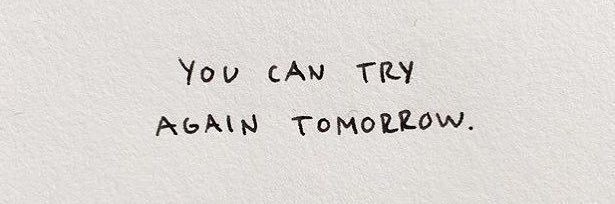 YOU CAN TRY
AGAIN TOMORROW.